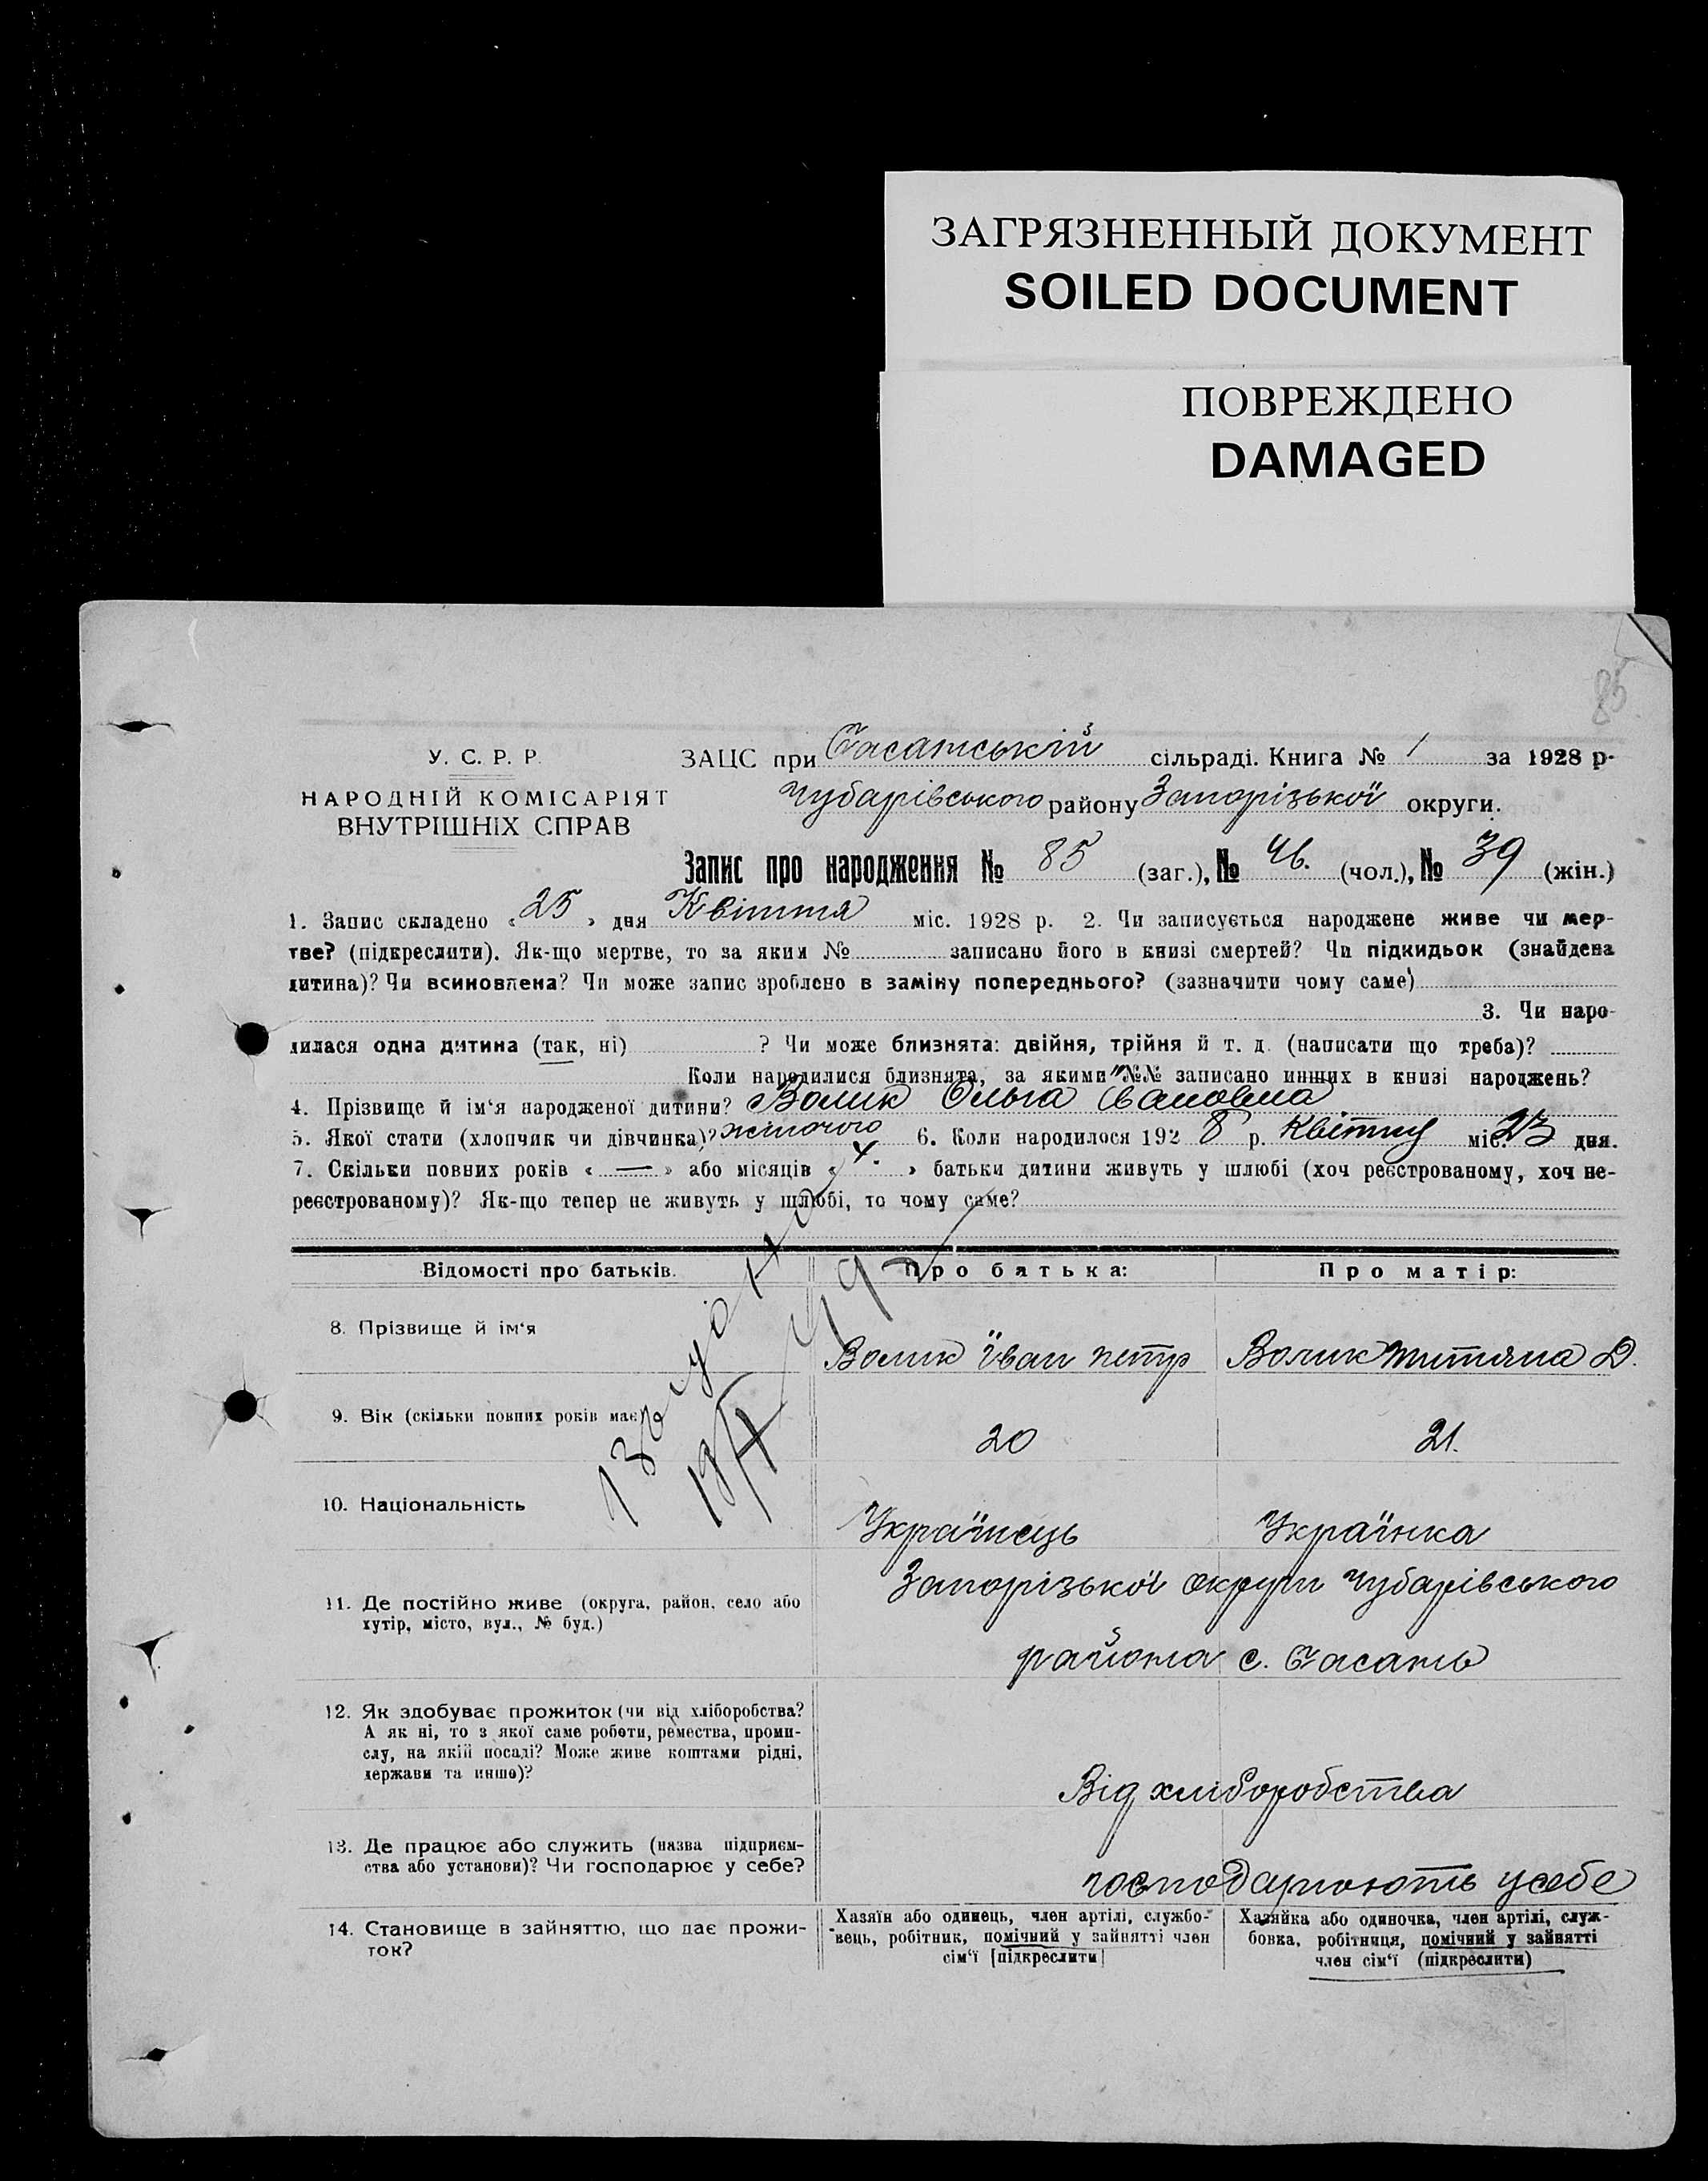 ЗАГРЯЗНЕННЫЙ ДОКУМЕНТ
SOILED DOCUMENT
ПОВРЕЖДЕНО
DAMAGED
85
У. С. Р. Р.
НАРОДНІЙ КОМІСАРІЯТ
ВНУТРІШНІХ СПРАВ
ЗАЦС при Басанській сільраді. Книга № 1 за 1928 р.
Чубарівського району Запорізької округи.
Запис про народження № 85 (заг.), № 46. (чол.), № 39 (жін.)
1. Запис складено «25» дня Квіття міс. 1928 р. 2. Чи записується народжене живе чи мер-
тве? (підкреслити). Як-що мертве, то за яким № записано його в книзі смертей? Чи підкидьок (знайдена
дитина)? Чи всиновлена? Чи може запис зроблено в заміну попереднього? (зазначити чому саме)
3. Чи наро-
дилася одна дитина (так, ні) ? Чи може близнята: двійня, трійня й т. д. (написати що треба)?
Коли народилися близнята, за якими №№ записано инших в книзі народжень?
4. Прізвище й ім‘я народженої дитини? Волик Ольга Івановна
5. Якої стати (хлопчик чи дівчинка)? жіночого 6. Коли народилося 1928 р. Квітну міс. 23 дня.
7. Скільки повних років «—» або місяців «4.» батьки дитини живуть у шлюбі (хоч реєстрованому, хоч не-
реєстрованому)? Як-що тепер не живуть у шлюбі, то чому саме?
Відомості про батьків.
Про батька:
Про матір:
8. Прізвище й ім‘я
Волик Іван петр
Волик Титяна Д.
9. Вік (скільки повних років має)
20
21.
10. Національність
Українець
Українка
11. Де постійно живе (округа, район, село або
хутір, місто, вул., № буд.)
Запорізької округи Чубарівського
района с. Басань
12. Як здобуває прожиток (чи від хліборобства?
А як ні, то з якої саме роботи, ремества, проми-
слу, на якій посаді? Може живе коштами рідні,
держави та инше)?
Від хліборобства
13. Де працює або служить (назва підприєм-
ства або установи)? Чи господарює у себе?
господарюють усебе
14. Становище в зайняттю, що дає прожи-
ток?
Хазяїн або одинець, член артілі, службо-
вець, робітник, помічний у зайнятті член
сім‘ї [підкреслити]
Хазяйка або одиночка, член артілі, служ-
бовка, робітниця, помічний у зайнятті
член сім‘ї (підкреслити)